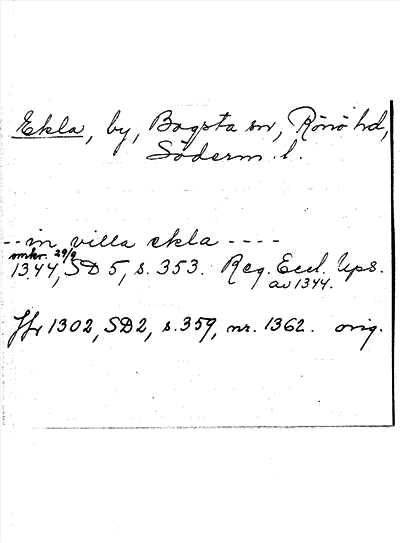 Ekla, by, Bogsta sn, Rönö hd,
Söderm. l.
-- in villa ekla ----
omkr. 29/9
1344, SD 5, s. 353. Reg. Eccl. Ups.
av 1344.
Jfr 1302, SD2, s. 359, nr. 1362. orig.